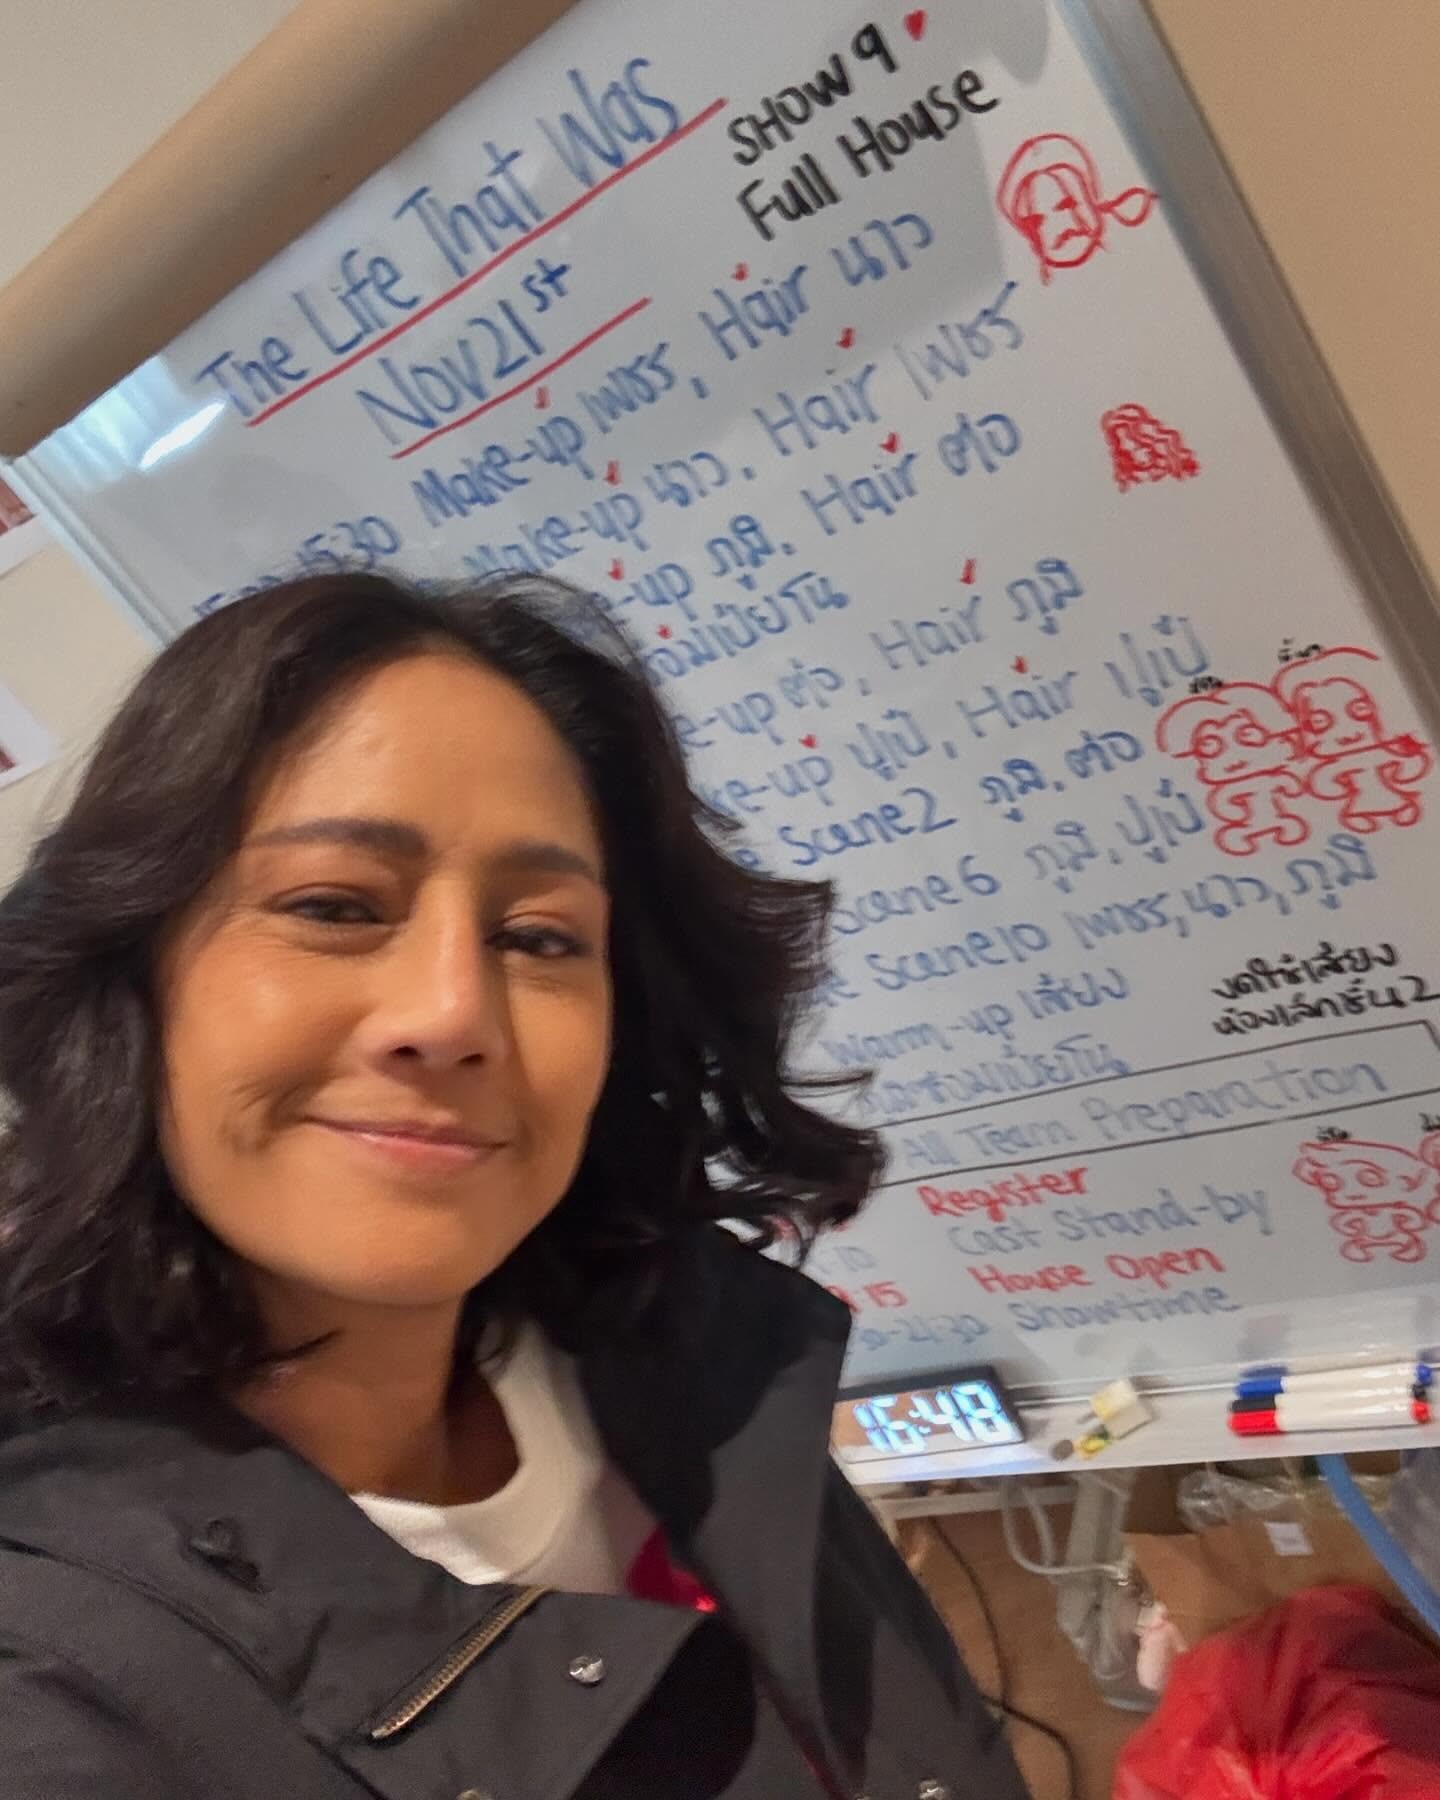 The Life That Was
SHOW 9
Full House
Nov 21st
15:30 Make-up เพชร, Hair นาว
Make-up นาว, Hair เพชร
-up ภูมิ, Hair ต่อ
ซ้อมเปียโน
-up ต่อ, Hair ภูมิ
-up ปูเป้, Hair ปูเป้
Scene 2 ภูมิ, ต่อ
Scene 6 ภูมิ, ปูเป้
Scene 10 เพชร, นาว, ภูมิ
Warm-up เสียง
งดใช้เสียง
ห้องเล็กชั้น 2
และซ้อมเปียโน
All Team Preparation
Register
Cast Stand-by
:15 House Open
-21:30 Showtime
16:48